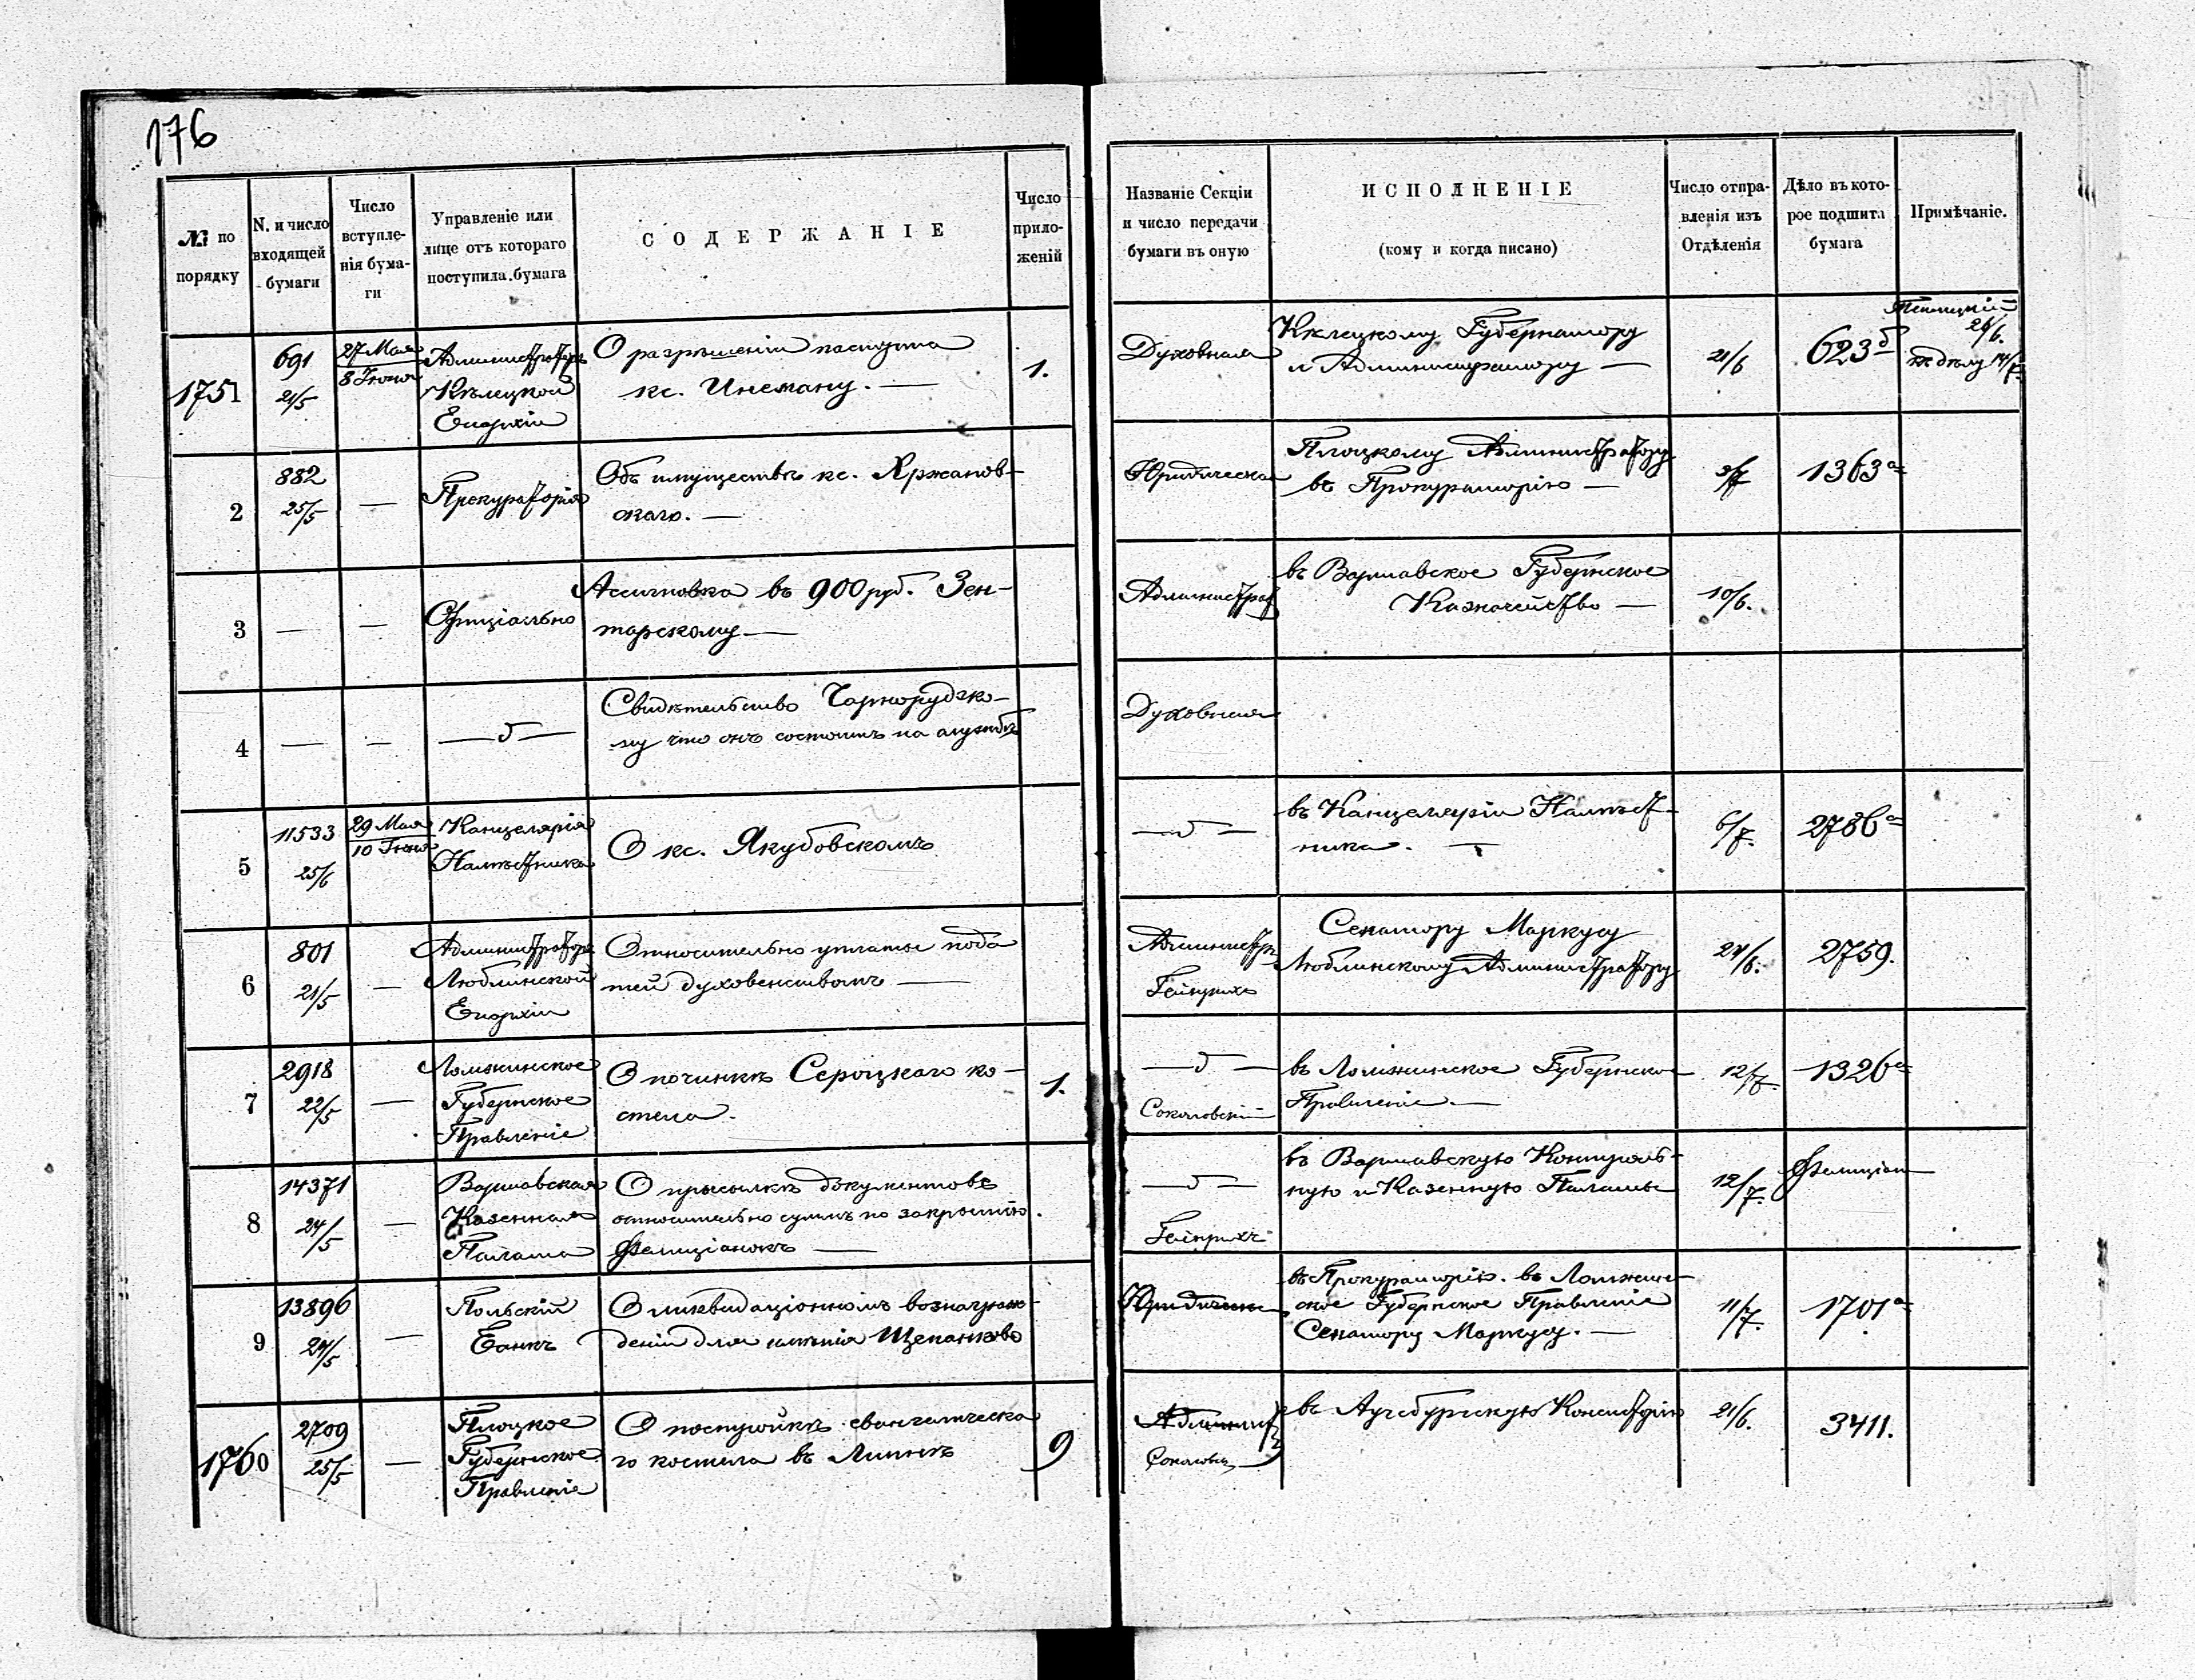 176
№ по порядку
N. и число входящей бумаги
Число вступленія бумаги
Управленіе или лице отъ котораго поступила бумага
СОДЕРЖАНІЕ
Число приложеній
Названіе Секціи и число передачи бумаги въ оную
ИСПОЛНЕНІЕ
(кому и когда писано)
Число отправленія изъ Отдѣленія
Дѣло въ которое подшита бумага
Примѣчаніе.
1751
691
21/5
27 Мая
8 Іюня
Администраторъ
Кѣлецкой
Епархіи
О разрѣшеніи паспорта
кс. Инеману. —
1.
Духовная
Кѣлецкому Губернатору
и Администратору —
21/6
623б
26/6.
къ дѣлу 14/7.
2
882
25/5
—
Прокураторія
Объ имуществѣ кс. Яржанов-
скаго. —
Юридическая
Плоцкому Администратору
въ Прокураторію —
3/7
1363а
3
—
—
Офиціально
Ассигновка въ 900 руб. Зен-
тарскому —
Администрат
въ Варшавское Губернское
Казначейство —
10/6.
4
—
—
—„—
Свидѣтельство Чарнорудзко-
му что онъ состоитъ на службѣ
Духовная
5
11533
25/6
29 Мая
10 Іюня
Канцелярія
Намѣстника
О кс. Якубовскомъ
—„—
въ Канцелярію Намѣст-
ника. —
6/7.
2786а
6
801
21/5
—
Администраторъ
Люблинской
Епархіи
Относительно уплаты пода
тей духовенствомъ —
Администр
Гейнрихъ
Сенатору Маркусу
Люблинскому Администратору
24/6.
2759.
7
2918
22/5
—
Ломжинское
Губернское
Правленіе
О починкѣ Сероцкаго ко-
стела.
1.
—„—
Соколовскій
въ Ломжинское Губернское
Правленіе. —
12/7
1326а
8
14371
24/5
—
Варшавская
Казенная
Палата
О присылкѣ документовъ
относительно суммъ по закрытію
Фелиціанокъ —
—„—
Гейнрихъ
въ Варшавскую Контроль-
ную и Казенную Палаты
12/7.
Фелиціан
9
13896
24/5
—
Польскій
Банкъ
О ликвидаціонномъ вознаграж-
деніи для имѣнія Щепанково
Юридическ
въ Прокураторію. въ Ломжин-
ское Губернское Правленіе
Сенатору Маркусу. —
11/7.
1701а
1760
2709
25/5
—
Плоцкое
Губернское
Правленіе
О постройкѣ евангелическа
го костела въ Липнѣ
9
Админист
Соколовск
въ Аугсбургскую Консисторію
21/6.
3411.